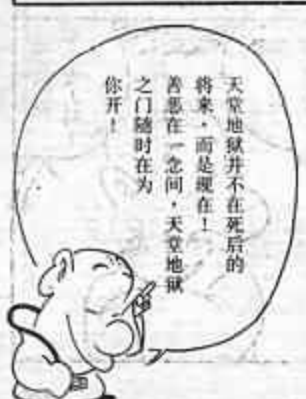 天堂地狱并不在死后的
将来，而是现在！
善恶在一念间，天堂地狱
之门随时在为
你开！